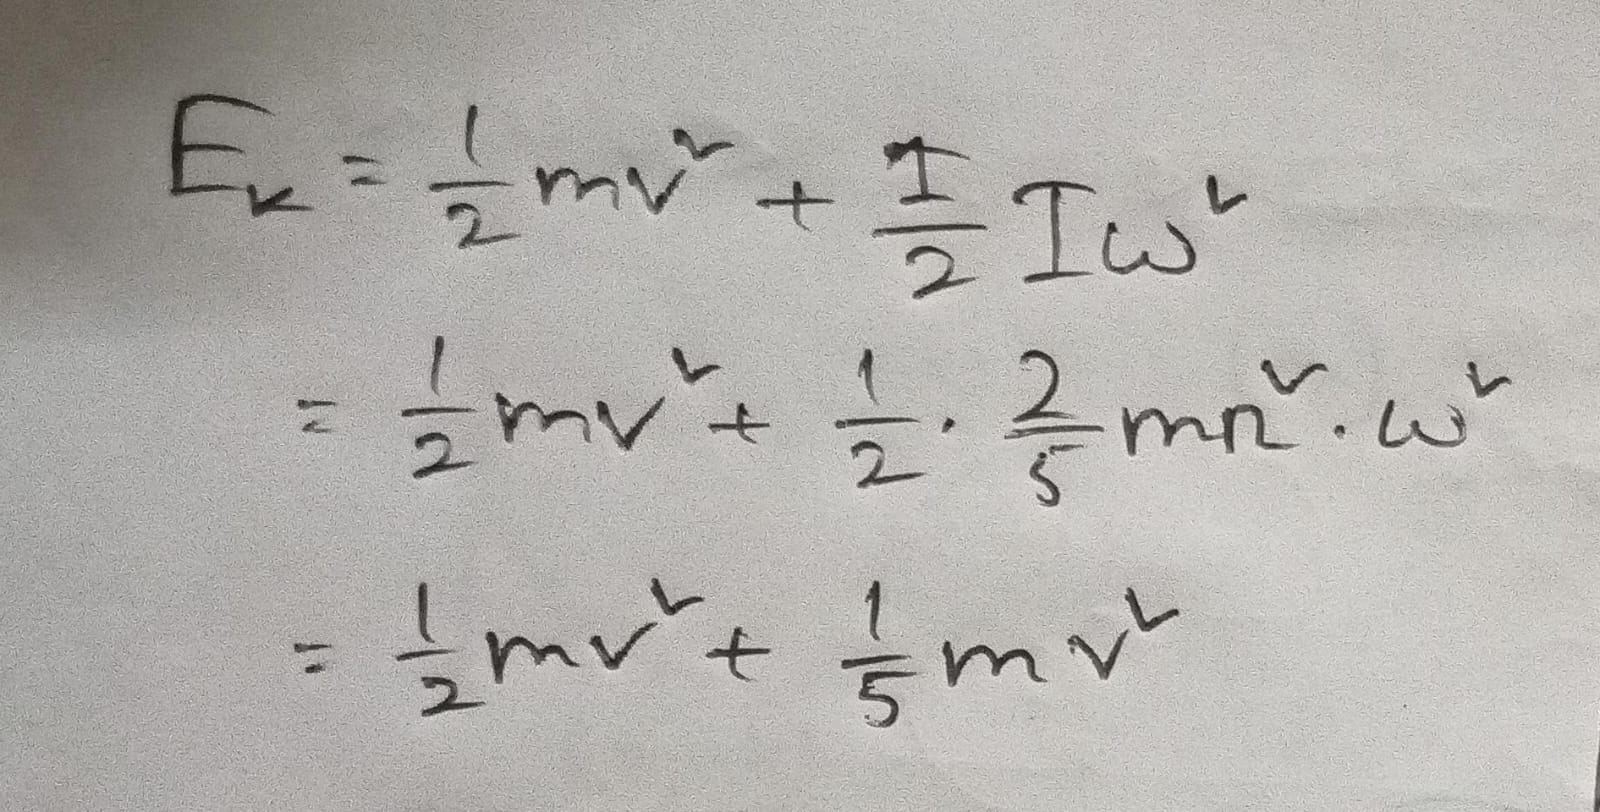 E_k = 1/2 mv² + 1/2 Iω²
= 1/2 mv² + 1/2 · 2/5 mr² · ω²
= 1/2 mv² + 1/5 mv²